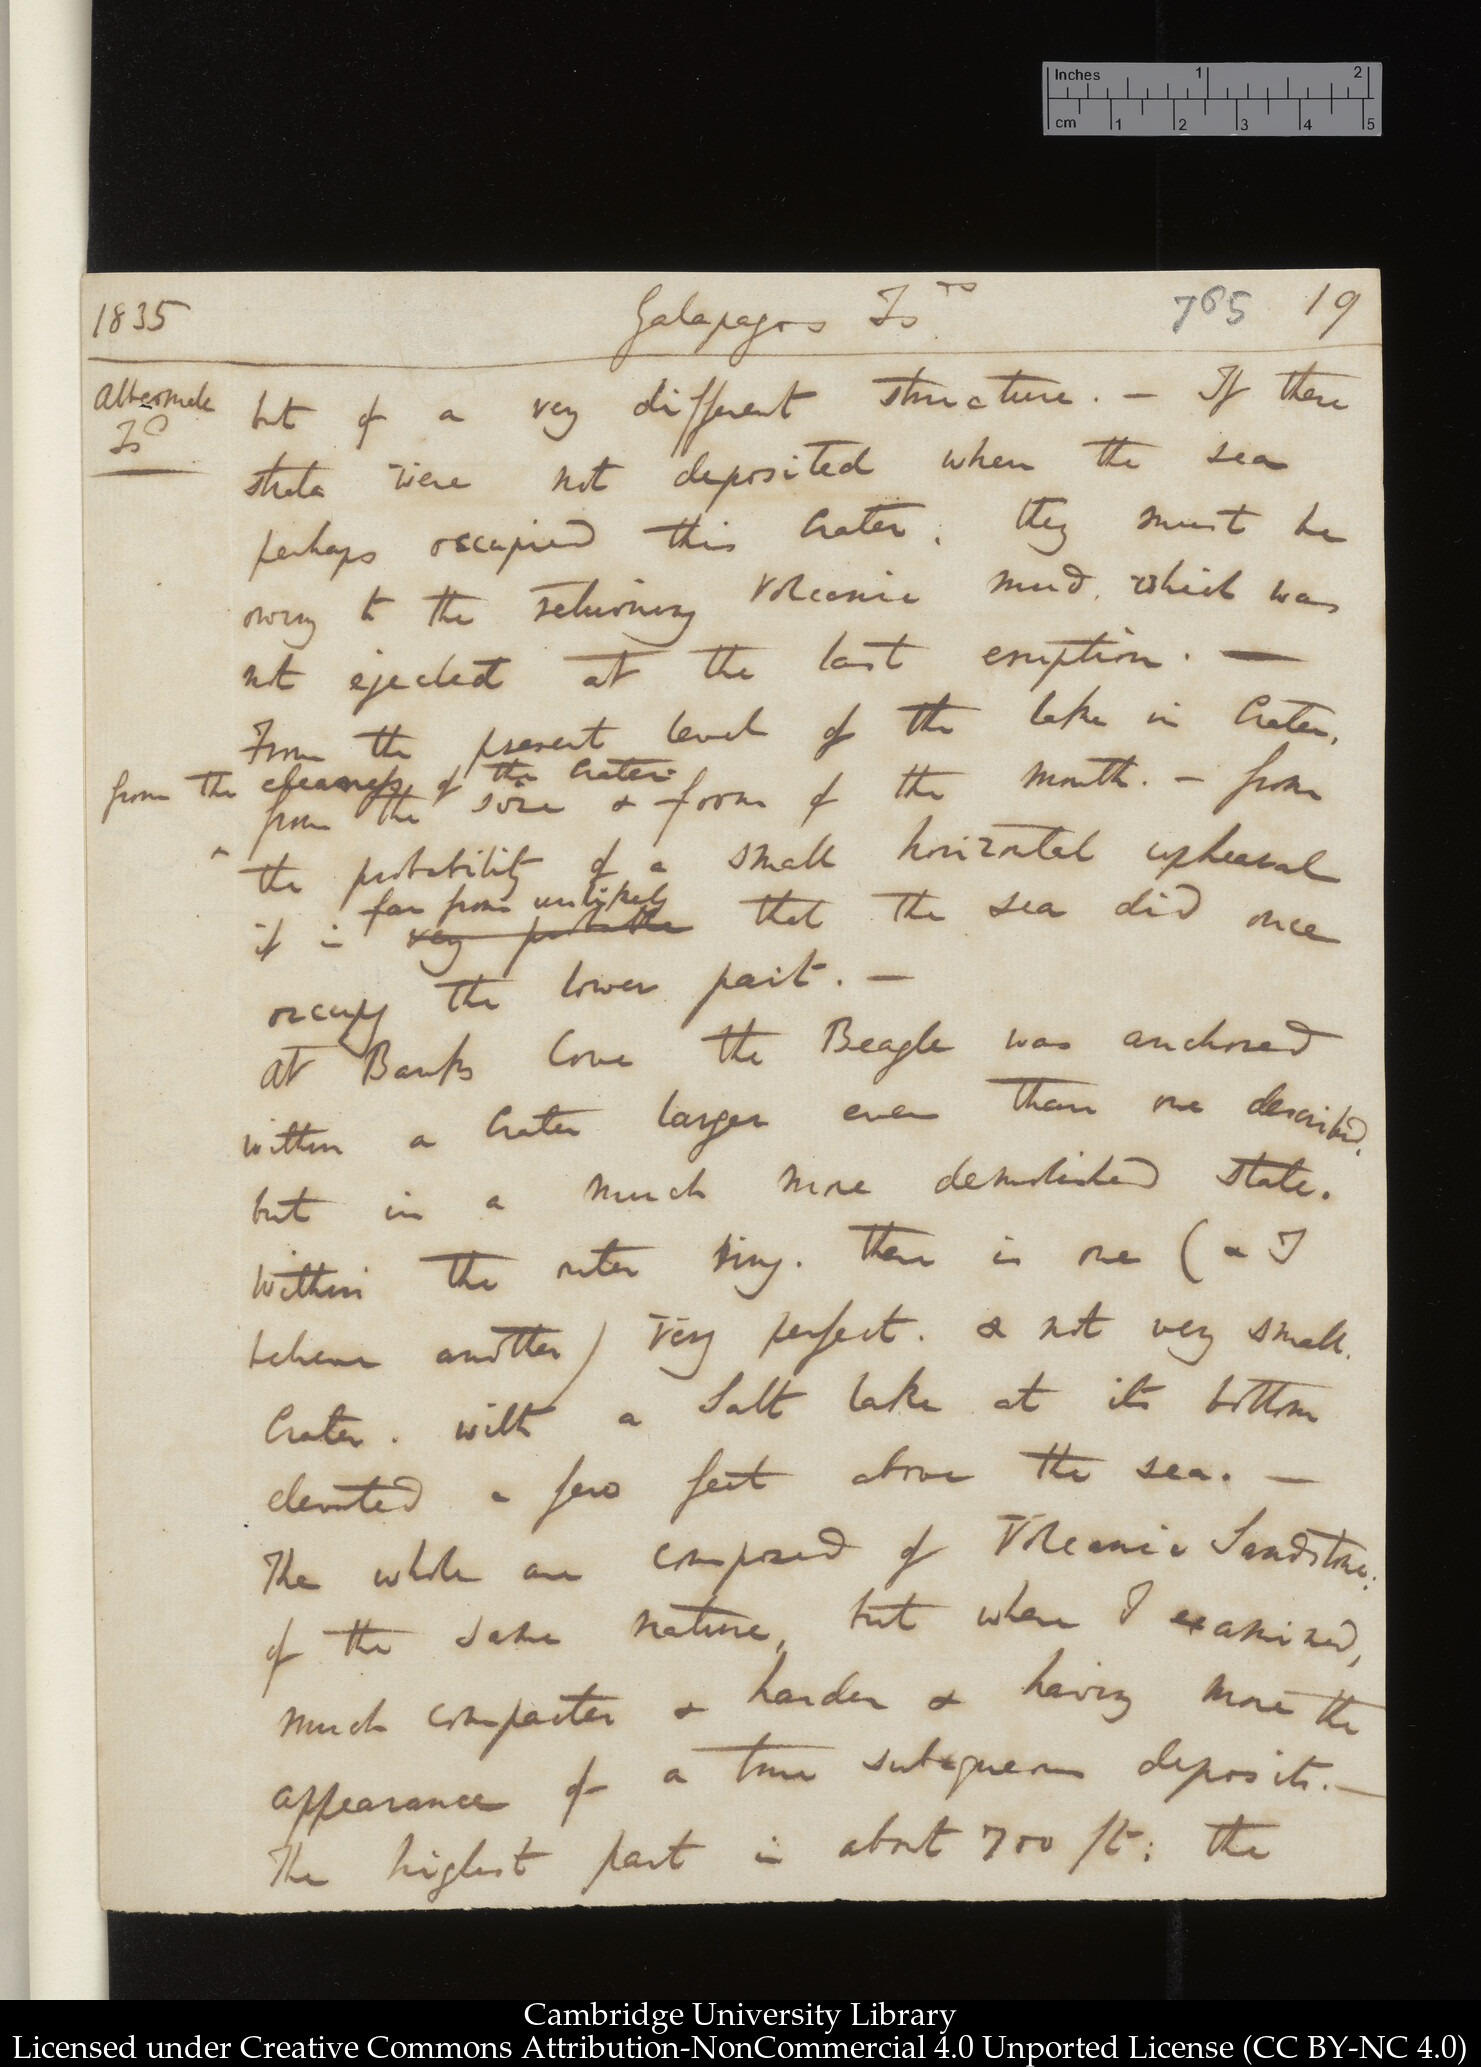 Inches 1 2
cm 1 2 3 4 5
1835 Galapagos Is ds 765 19
Albermale Isd
but of a very different structure. — If these
strata were not deposited when the sea
perhaps occupied this Crater; they must be
owing to the returning Volcanic mud, which was
not ejected at the last eruption. —
From the present level of the lake in Crater,
from the cleaness of the Crater:
from the size & form of the mouth. — from
the probability of a small horizontal upheaval
far from unlikely
it is very probable that the sea did once
occupy the lower part. —
At Banks Cove the Beagle was anchored
within a Crater larger even than one described,
but in a much more demolished state.
Within the outer ring. there is one (& I
believe another) very perfect. & not very small.
Crater. with a Salt lake at its bottom
elevated a few feet above the sea. —
The whole are composed of Volcanic Sandstone;
of the same nature, but where I examined,
much compacter & harder & having more the
appearance of a true subaqueous deposit. —
The highest part is about 700 ft: the
Cambridge University Library
Licensed under Creative Commons Attribution-NonCommercial 4.0 Unported License (CC BY-NC 4.0)